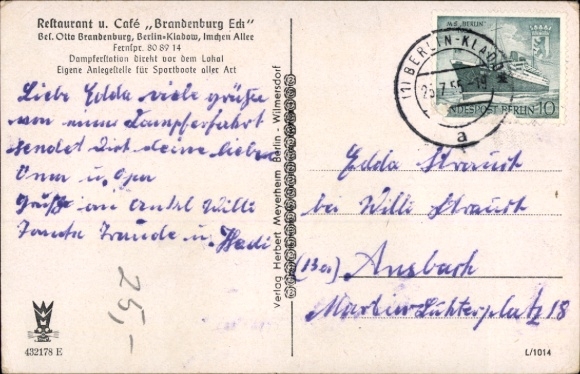 Restaurant u. Café „Brandenburg Eck"
Bes. Otto Brandenburg, Berlin-Kladow, Imchen Allee
Fernspr. 80 89 14
Dampferstation direkt vor dem Lokal
Eigene Anlegestelle für Sportboote aller Art
Liebe Edda viele grüße
von einer Dampferfahrt
sendet Dir deine lieben
Oma u. Opa
Grüße an Onkel Willi
Tante Traude u. Hedi
25,-
432178 E
Verlag Herbert Meyerheim Berlin - Wilmersdorf
M·S „BERLIN"
DEUTSCHE BUNDESPOST BERLIN 10
(1) BERLIN-KLADOW
a
Edda Straudt
bei Willi Straudt
(13a) Ansbach
Martin Lutherplatz 18
L/1014